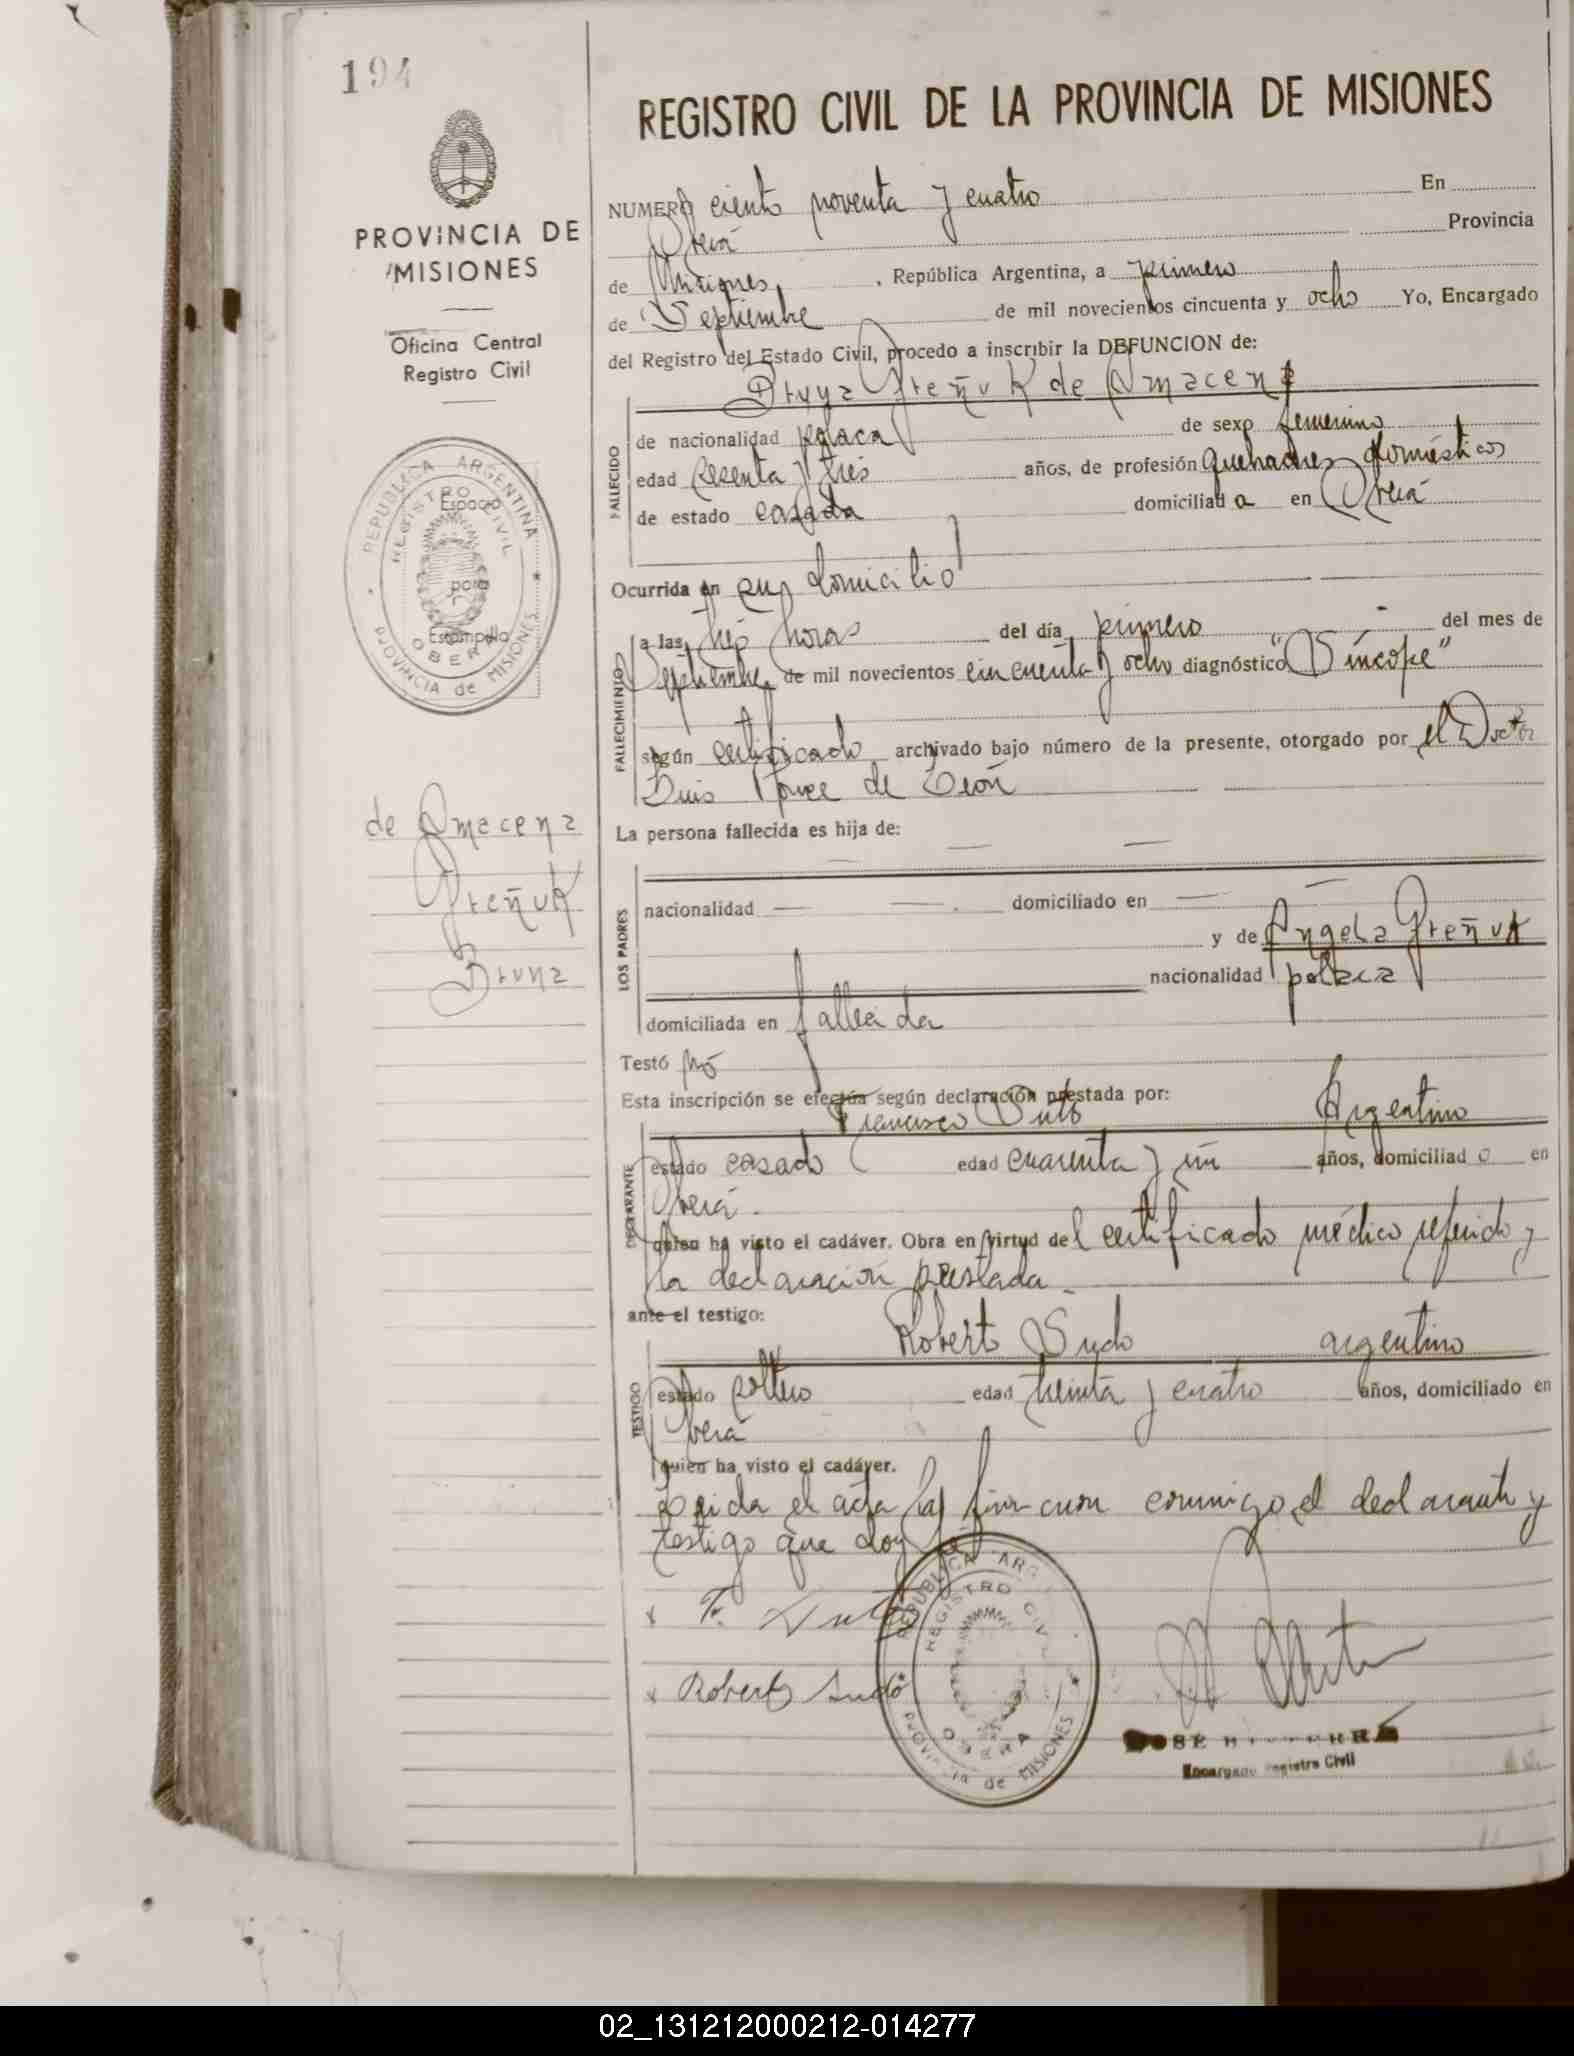 194
PROVINCIA DE
MISIONES
Oficina Central
Registro Civil
REPUBLICA ARGENTINA
REGISTRO CIVIL
Espacio
para
Estampilla
OBERA
PROVINCIA de MISIONES
de Omacenz
Greñuk
Bruna
REGISTRO CIVIL DE LA PROVINCIA DE MISIONES
NUMERO ciento noventa y cuatro En
Oberá Provincia
de Misiones, República Argentina, a primero
de Septiembre de mil novecientos cincuenta y ocho Yo, Encargado
del Registro del Estado Civil, procedo a inscribir la DEFUNCION de:
Greñuk de
FALLECIDO
de nacionalidad polaca de sexo femenino
edad sesenta y tres años, de profesión quehaceres domésticos
de estado casada domiciliada en Oberá
Ocurrida en su domicilio
FALLECIMIENTO
a las tres horas del día primero del mes de
Septiembre de mil novecientos cincuenta y ocho diagnóstico "Síncope"
según certificado archivado bajo número de la presente, otorgado por el Doctor
Luis Ponce de León
La persona fallecida es hija de:
LOS PADRES
nacionalidad — — domiciliado en —
y de Angela Greñuk
nacionalidad polaca
domiciliada en fallecida
Testó no
Esta inscripción se efectúa según declaración prestada por:
DECLARANTE
Francisco Argentino
estado casado edad cuarenta y un años, domiciliado en
Oberá.
quien ha visto el cadáver. Obra en virtud del certificado médico referido y
la declaración prestada.
ante el testigo:
TESTIGO
Roberto Sudo argentino
estado soltero edad treinta y cuatro años, domiciliado en
Oberá
quien ha visto el cadáver.
Leida el acta la firman conmigo el declarante y
testigo que doy fé
F.
Roberto Sudo
REPUBLICA ARG
REGISTRO CIV
OBERA
PROVINCIA de MISIONES
Encargado Registro Civil
02_131212000212-014277